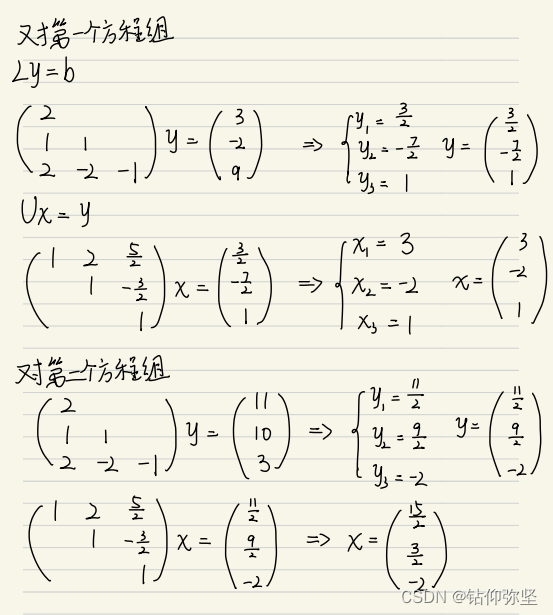 对第一个方程组
Ly = b
(2; 1 1; 2 -2 -1) y = (3; -2; 9) ⇒ { y₁ = 3/2; y₂ = -7/2; y₃ = 1 y = (3/2; -7/2; 1)
Ux = y
(1 2 5/2; 1 -3/2; 1) x = (3/2; -7/2; 1) ⇒ { x₁ = 3; x₂ = -2; x₃ = 1 x = (3; -2; 1)
对第二个方程组
(2; 1 1; 2 -2 -1) y = (11; 10; 3) ⇒ { y₁ = 11/2; y₂ = 9/2; y₃ = -2 y = (11/2; 9/2; -2)
(1 2 5/2; 1 -3/2; 1) x = (11/2; 9/2; -2) ⇒ x = (15/2; 3/2; -2)
CSDN @钻仰弥坚